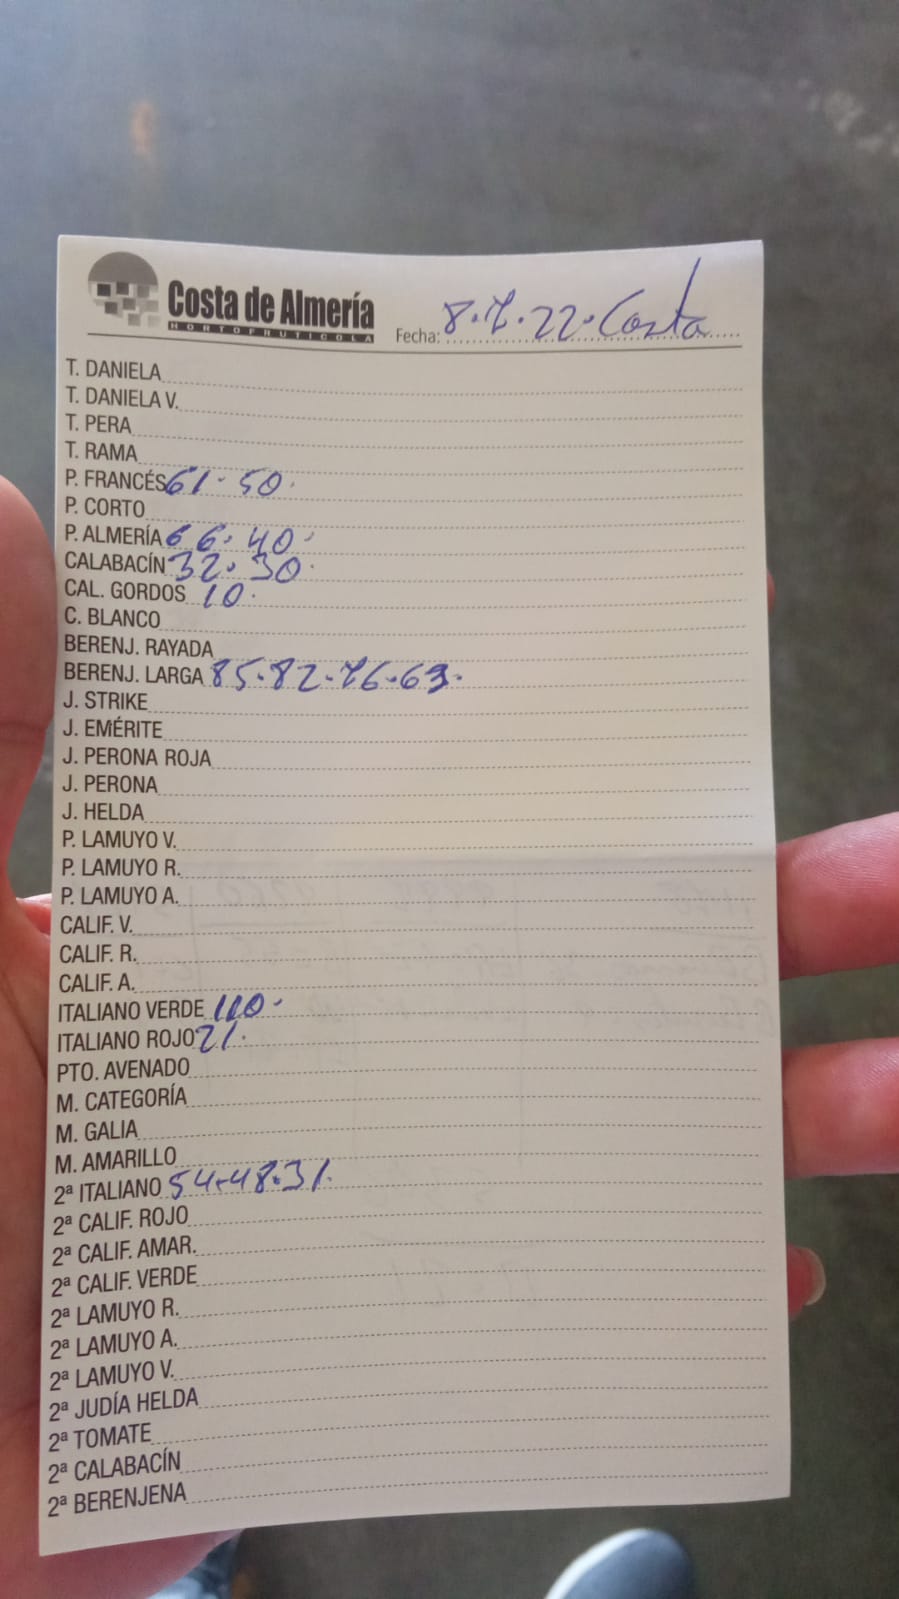 Costa de Almería
HORTOFRUTICOLA
Fecha: 8.7.22. Costa
T. DANIELA
T. DANIELA V.
T. PERA
T. RAMA
P. FRANCÉS 61. 50.
P. CORTO
P. ALMERÍA 66. 40.
CALABACÍN 32. 30.
CAL. GORDOS 10.
C. BLANCO
BERENJ. RAYADA
BERENJ. LARGA 85.82.76.63.
J. STRIKE
J. EMÉRITE
J. PERONA ROJA
J. PERONA
J. HELDA
P. LAMUYO V.
P. LAMUYO R.
P. LAMUYO A.
CALIF. V.
CALIF. R.
CALIF. A.
ITALIANO VERDE 110.
ITALIANO ROJO 21.
PTO. AVENADO
M. CATEGORÍA
M. GALIA
M. AMARILLO
2ª ITALIANO 54.48.31.
2ª CALIF. ROJO
2ª CALIF. AMAR.
2ª CALIF. VERDE
2ª LAMUYO R.
2ª LAMUYO A.
2ª LAMUYO V.
2ª JUDÍA HELDA
2ª TOMATE
2ª CALABACÍN
2ª BERENJENA